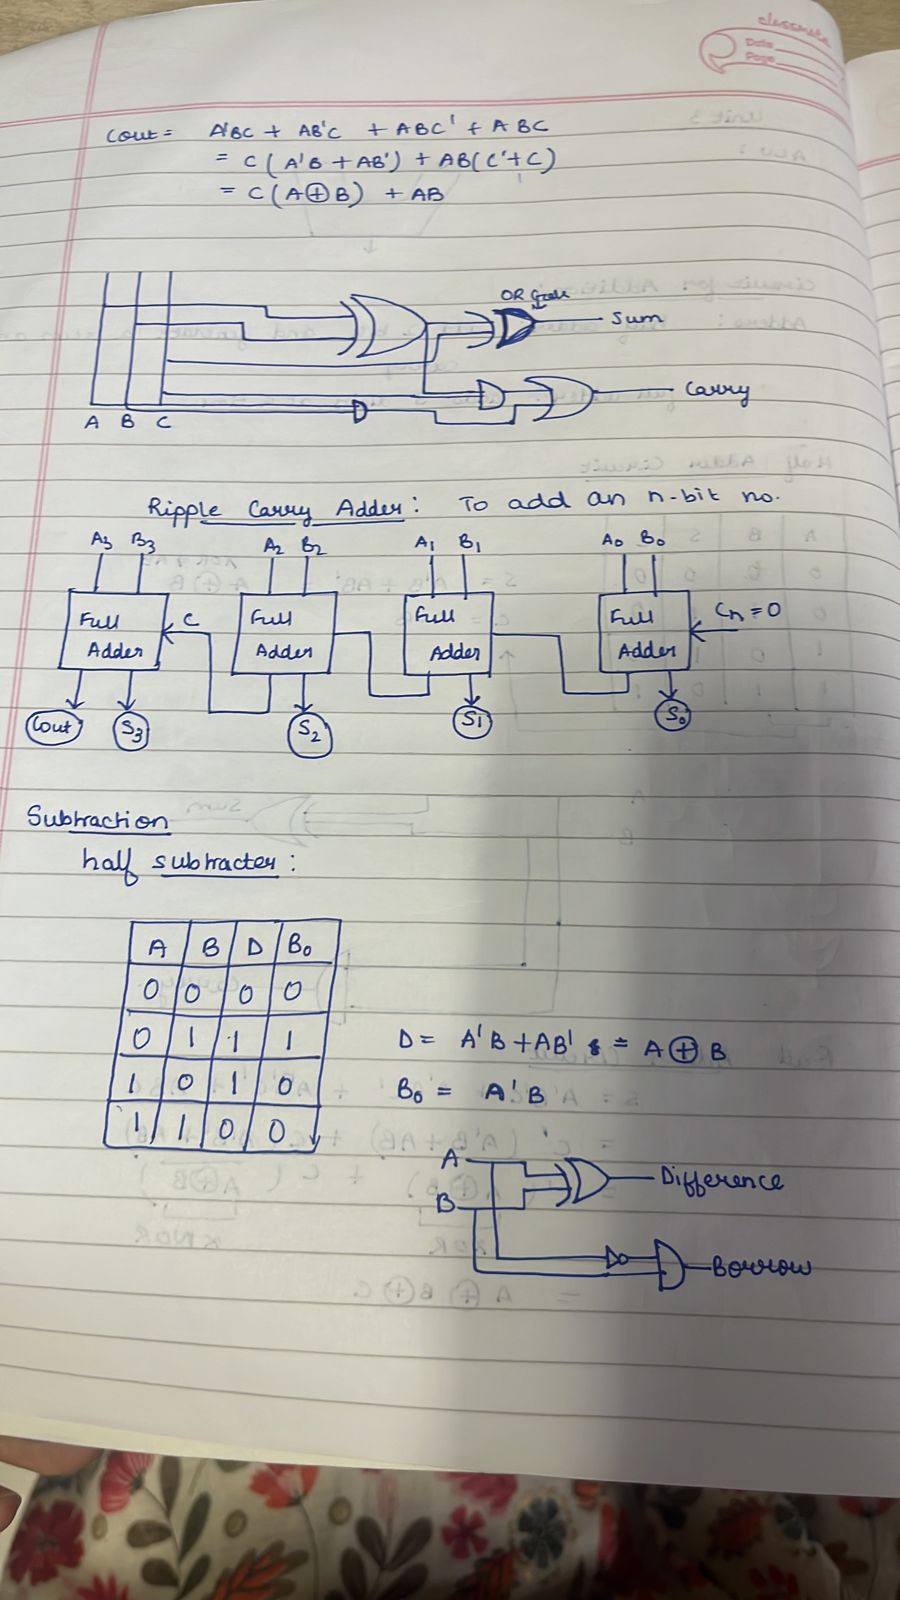 classmate
Date
Page
Cout = A'BC + AB'C + ABC' + ABC
= C(A'B + AB') + AB(C'+C)
= C(A⊕B) + AB
OR Gate
Sum
Carry
A B C
Ripple Carry Adder: To add an n-bit no.
A3 B3 A2 B2 A1 B1 A0 B0
Full Adder C Full Adder Full Adder Full Adder Cn=0
Cout S3 S2 S1 S0
Subtraction
half subtracter:
A B D B0
0 0 0 0
0 1 1 1
1 0 1 0
1 1 0 0
D = A'B + AB' = A⊕B
B0 = A'B
A
Difference
B
Borrow